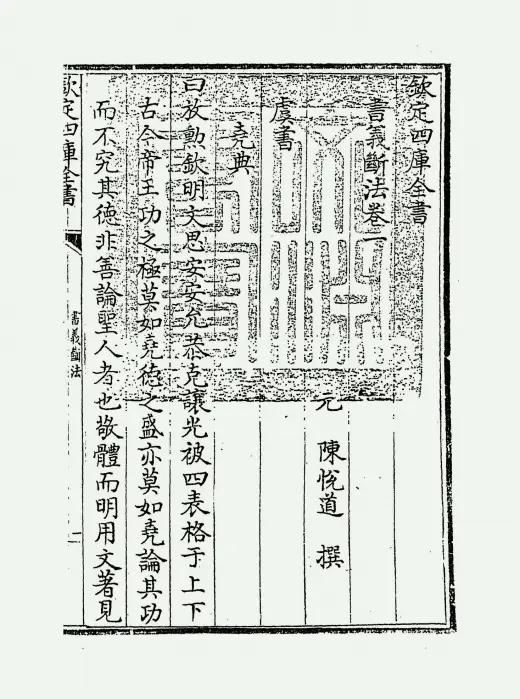 欽定四庫全書
書義斷法卷一
元　陳悅道　撰
虞書
堯典
曰放勳欽明文思安安允恭克讓光被四表格于上下
古今帝王功之極莫如堯德之盛亦莫如堯論其功
而不究其德非善論聖人者也敬體而明用文著見
欽定四庫全書
書義斷法
一